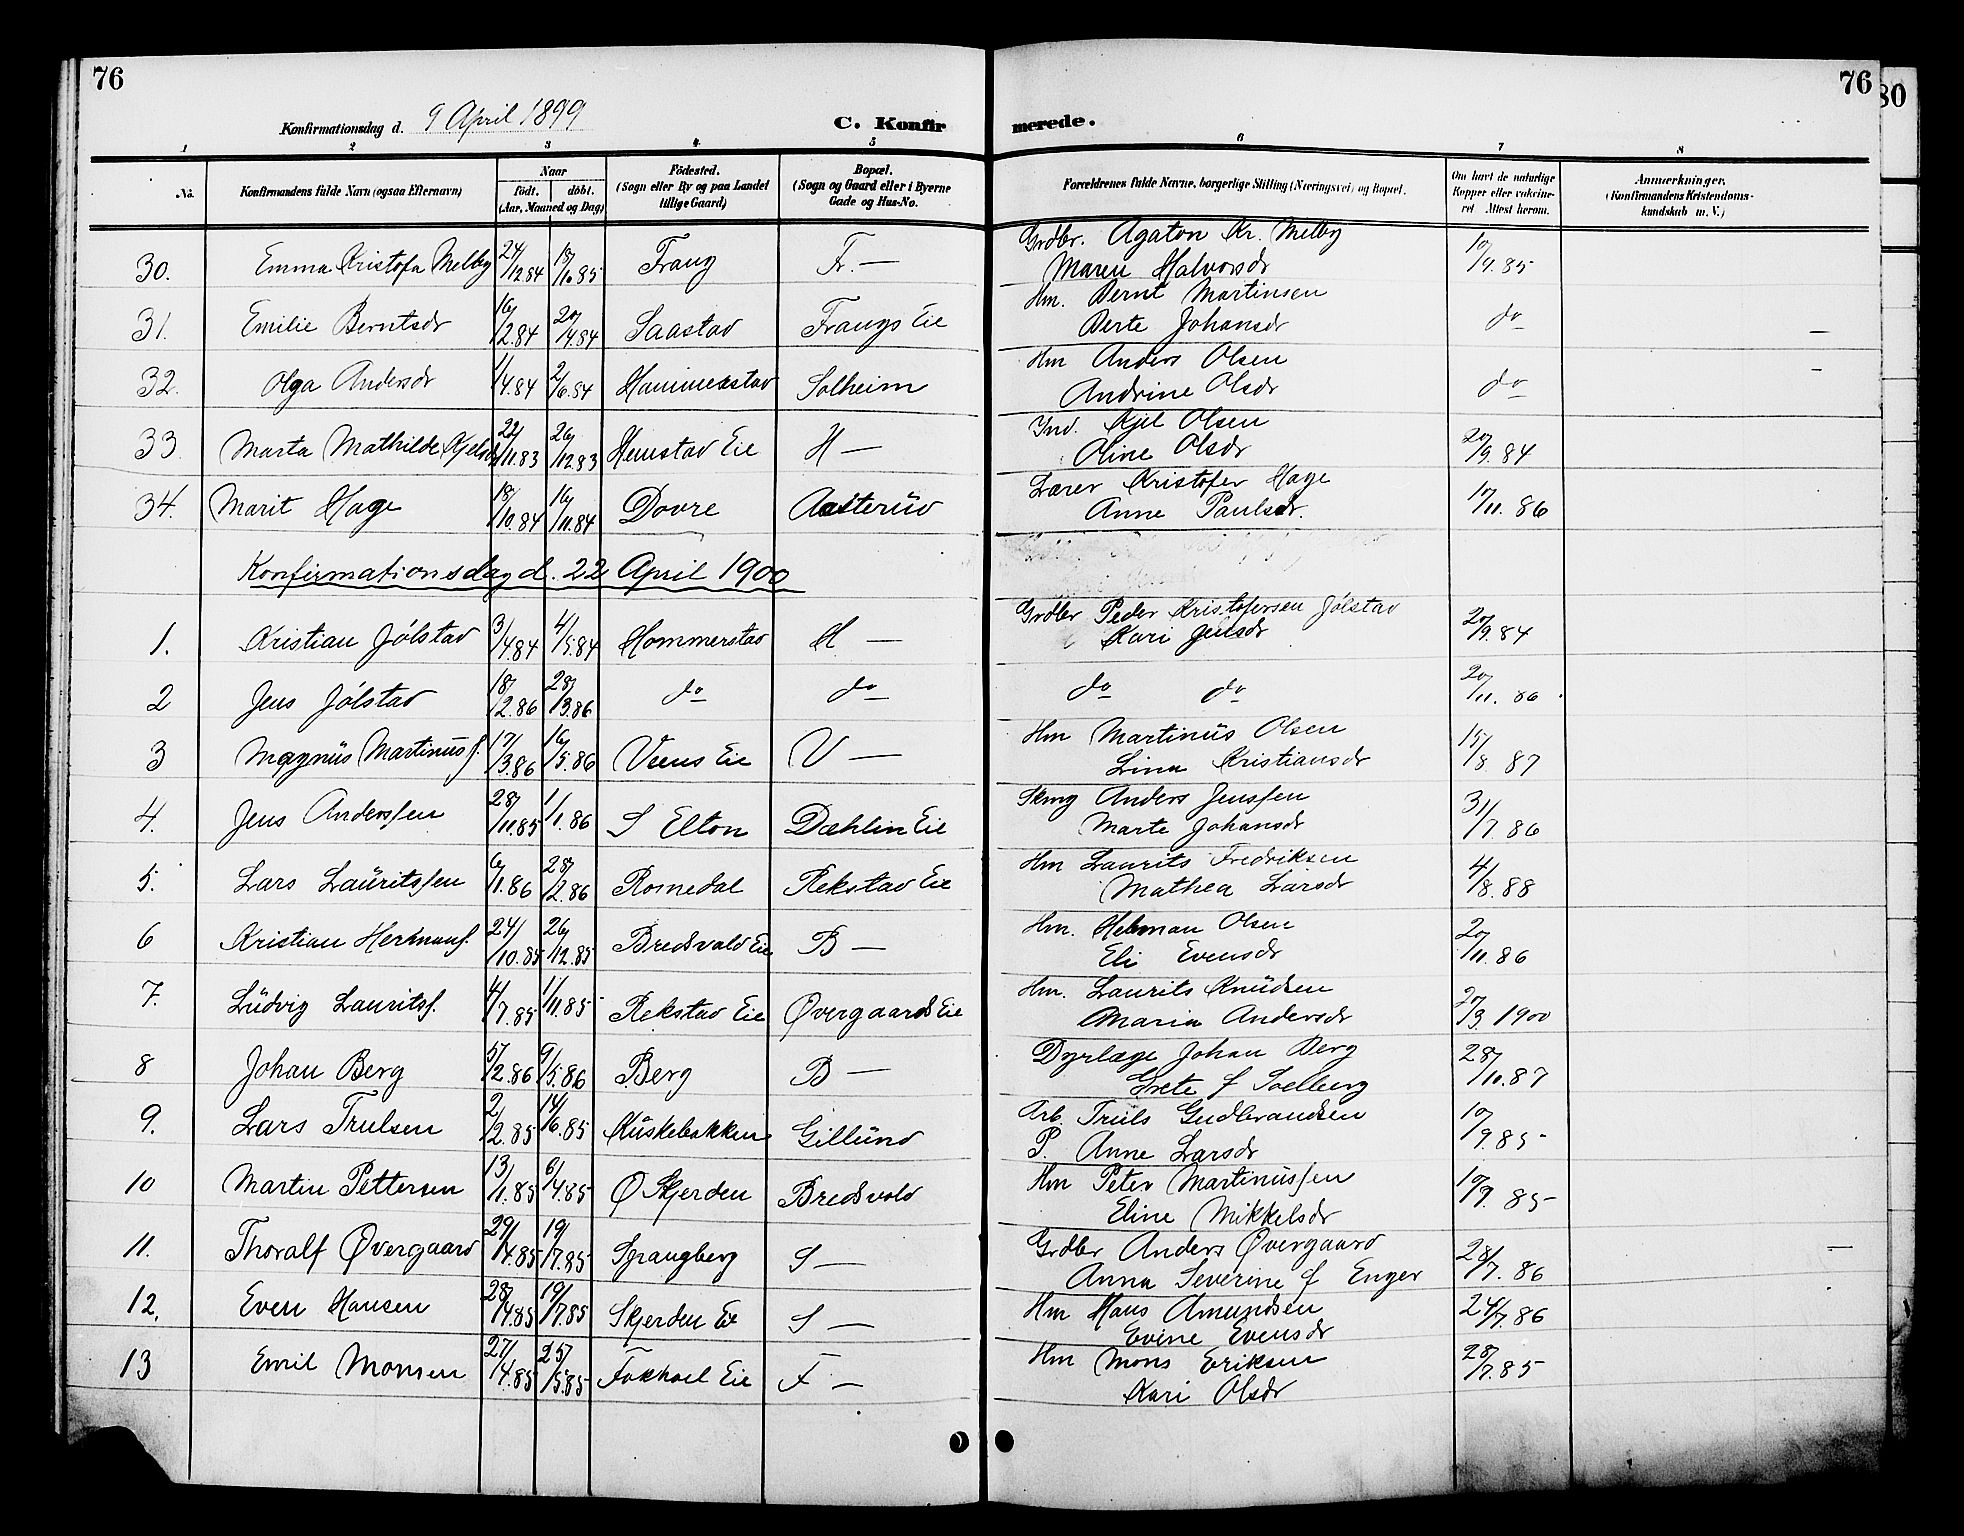 76
76
80
Konfirmationsdag d. 9 April 1899
C. Konfirmerede.
1 2 3 4 5 6 7 8
No.
Konfirmandens fulde Navn (ogsaa Efternavn)
Naar
født. døbt.
(Aar, Maaned og Dag)
Fødested.
(Sogn eller By og paa Landet
tillige Gaard)
Bopæl.
(Sogn og Gaard eller i Byerne
Gade og Hus-No.
Forældrenes fulde Navne, borgerlige Stilling (Næringsvei) og Bopæl.
Om havt de naturlige
Kopper eller vakcine-
ret Attest herom.
Anmærkninger.
(Konfirmandens Kristendoms-
kundskab m. V.)
30. Emma Kristofa Melby 24/12.84 18/10.85 Frang Fr. — Grdbr. Agaton Kr. Melby 10/9.85
Maren Halvorsdr
31. Emilie Berntsdr 16/2.84 20/4.84 Saastad Frangs Eie Hm. Bernt Martinsen do
Berte Johansdr
32. Olga Andersdr 1/4.84 2/6.84 Hammerstad Solheim Hm Anders Olsen do
Andrine Olsdr
33 Marta Mathilde Kjelsdr 22/11.83 26/12.83 Hemstad Eie H — Ind. Kjel Olsen 20/9.84
Oline Olsdr
34. Marit Hage 18/10.84 16/11.84 Dovre Aasterud Lærer Kristofer Hage 17/11.86
Anne Paulsdr.
Konfirmationsdag d. 22 April 1900
1. Kristian Jølstad 3/4.84 4/5.84 Hommerstad H — Grdbr Peder Kristofersen Jølstad 20/9.84
Kari Jensdr
2 Jens Jølstad 18/2.86 28/3.86 do do do do 20/11.86
3 Magnus Martinusf. 17/3.86 16/5.86 Veens Eie V — Hm Martinus Olsen 15/8.87
Lina Kristiansdr
4. Jens Anderssen 28/11.85 1/1.86 S Elton Dæhlin Eie Skmg Anders Jenssen 31/7.86
Marte Johansdr
5. Lars Lauritssen 6/1.86 28/2.86 Romedal Rekstad Eie Hm Laurits Fredriksen 4/8.88
Mathea Larsdr
6 Kristian Hermanf. 24/10.85 26/12.85 Bredsvold Eie B — Hm. Herman Olsen 20/11.86
Eli Evensdr
7. Ludvig Lauritsf. 4/7.85 1/11.85 Rekstad Eie Øvergaards Eie Hm. Laurits Knudsen 27/3 1900
Maria Andersdr
8 Johan Berg 5/2.86 9/5.86 Berg B — Dyrlæge Johan Berg 28/10.87
Grete f Soelberg
9. Lars Trulsen 2/2.85 14/6.85 Kuskebakken Gillund Arb. Truls Gudbrandsen 10/9.85
P. Anne Larsdr
10 Martin Pettersen 13/1.85 6/4.85 Ø Skjerden Bredsvold Hm Peter Martinussen 10/9.85
Eline Mikkelsdr
11. Thoralf Øvergaard 29/4.85 19/7.85 Spangberg S — Grdbr Anders Øvergaard 28/7.86
Anna Severine f Enger
12. Even Hansen 28/4.85 19/7.85 Skjerden Eie S — Hm Hans Amundsen 24/7.86
Evine Evensdr
13 Emil Monsen 27/4.85 25/5.85 Fokhoel Eie F — Hm Mons Eriksen 28/7.85
Kari Olsdr